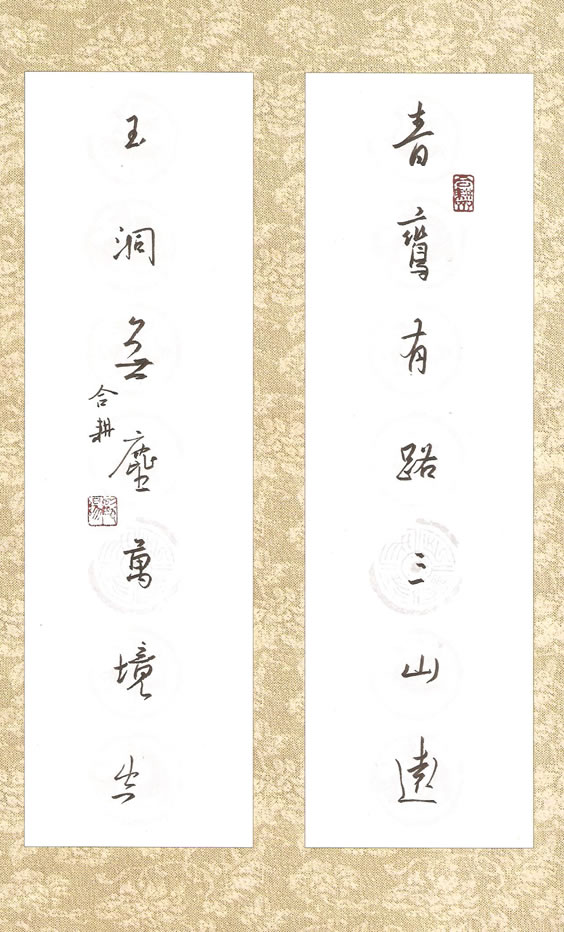 青鸞有路三山遠
玉洞無塵萬境
合耕